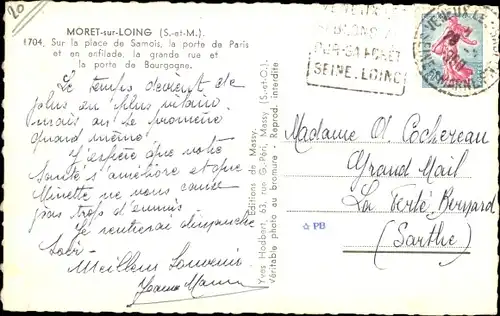 20
MORET-sur-LOING (S.-et-M.).
1704. Sur la place de Samois, la porte de Paris
et en enfilade, la grande rue et
la porte de Bourgogne.
Le temps devient de
plus en plus vilain.
mais on se promène
quand même
J'espère que votre
Santé s'améliore et que
Minette ne vous cause
pas trop d'ennuis
Je rentrerai dimanche
Soir
Meilleur Souvenir
Jeanne
Éditions de Massy.
Yves Hodbert, 63, rue G.-Péri, Massy (S.-et-O.).
Véritable photo au bromure. Reprod. interdite
SABLONS
SA FORÊT
SEINE. LOING
Madame A. Cochereau
Grand Mail
La Ferté Bernard
(Sarthe)
☆ PB